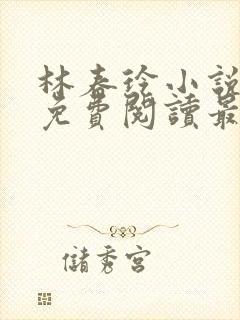 林春徐小說
免費閱讀最
儲秀宮